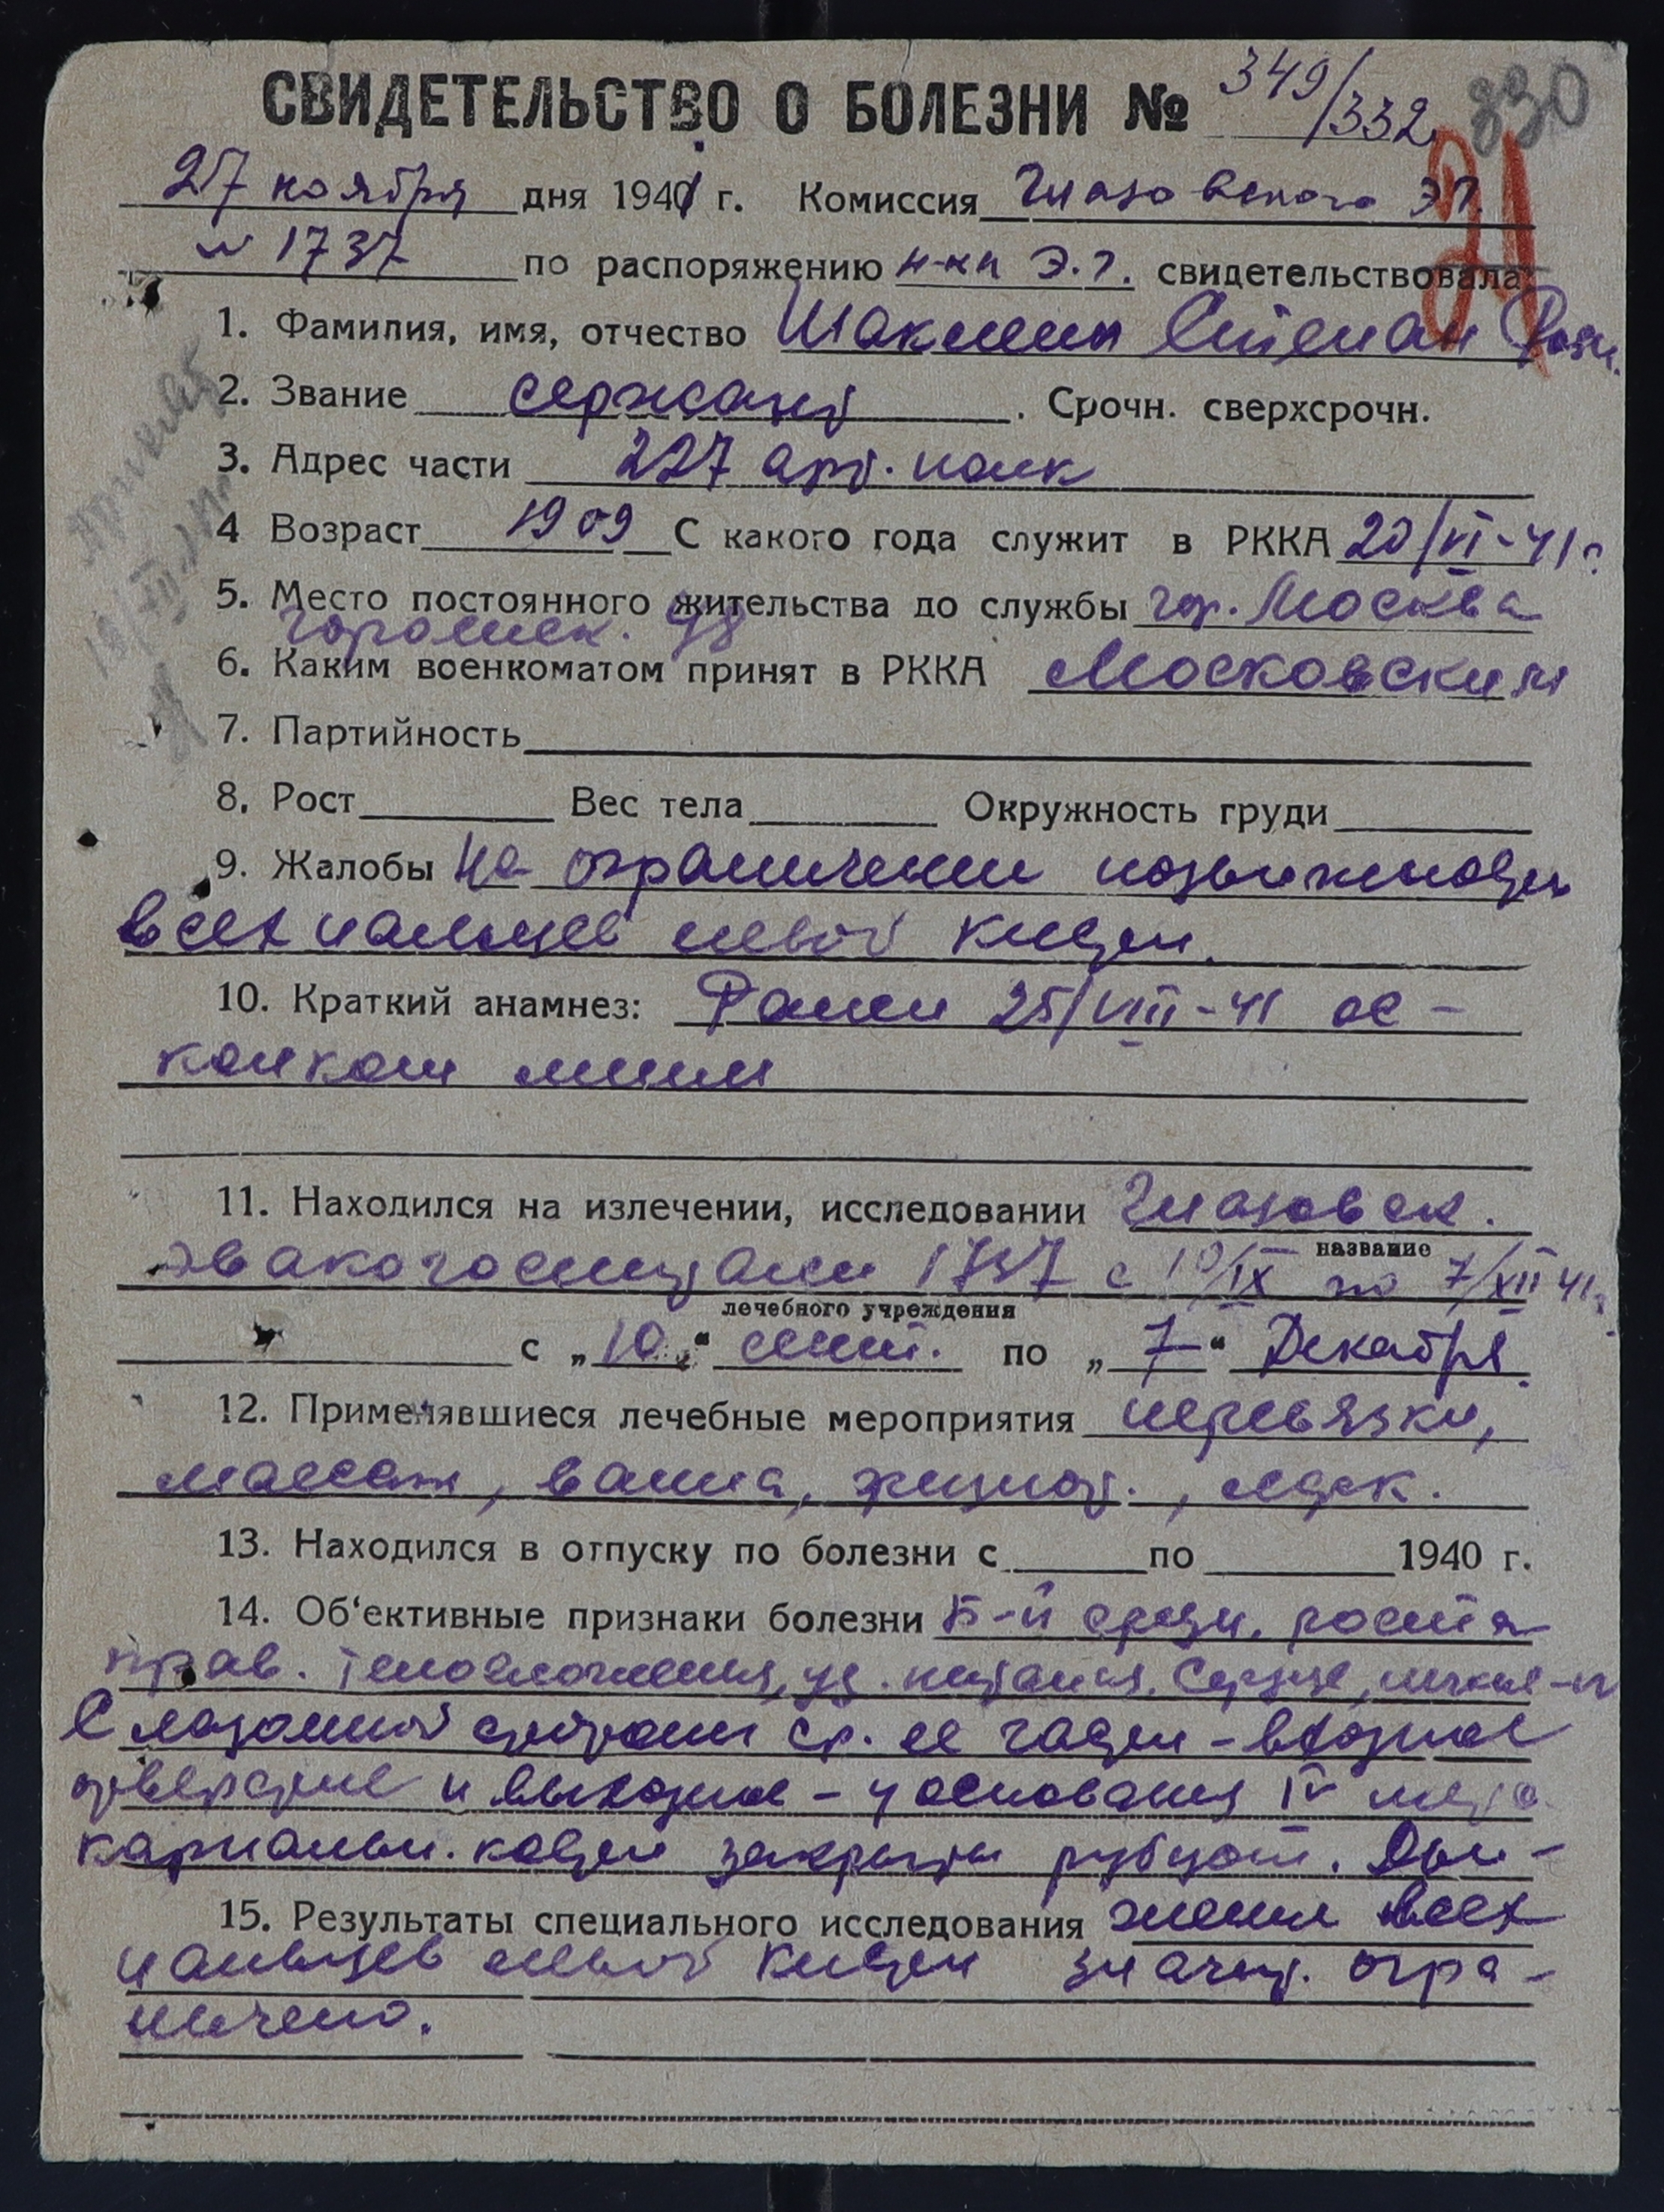 СВИДЕТЕЛЬСТВО О БОЛЕЗНИ № 349/332 330
21
27 ноября дня 1941 г. Комиссия Глазовского ЭГ.
№ 1737 по распоряжению н-ка Э.Г. свидетельствовала
1. Фамилия, имя, отчество Шакшин Степан
2. Звание сержант. Срочн. сверхсрочн.
3. Адрес части 227 арт. полк
4 Возраст 1909 С какого года служит в РККА 20/VI-41 г.
5. Место постоянного жительства до службы гор. Москва
98
6. Каким военкоматом принят в РККА Московским
7. Партийность
8. Рост Вес тела Окружность груди
9. Жалобы На ограничении подвижности
всех пальцев левой кисти.
10. Краткий анамнез: Ранен 25/VIII-41 ос-
колком мины
11. Находился на излечении, исследовании Глазовск.
название
эвакогоспитали 1737 с 10/IX по 7/XII 41 г.
лечебного учреждения
с „10“ сент. по „7“ Декабря
12. Применявшиеся лечебные мероприятия перевязки,
массаж, ванна, физиот., медик.
13. Находился в отпуску по болезни с по 1940 г.
14. Об‘ективные признаки болезни Б-й средн. роста
прав. телосложения, уд. питания. Сердце, легкие - N
С ладонной стороны ср. ее части - входное
отверстие и выходное - у основания IV мета
карпальн. кости закрыты рубцом. Дви-
15. Результаты специального исследования жения всех
пальцев левой кисти значит. огра-
ничено.